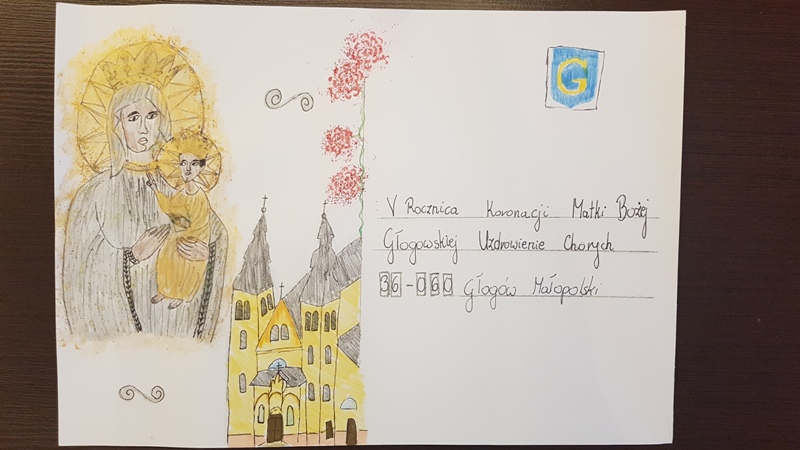 G
V Rocznica Koronacji Matki Bożej
Głogowskiej Uzdrowienie Chorych
36-060 Głogów Małopolski